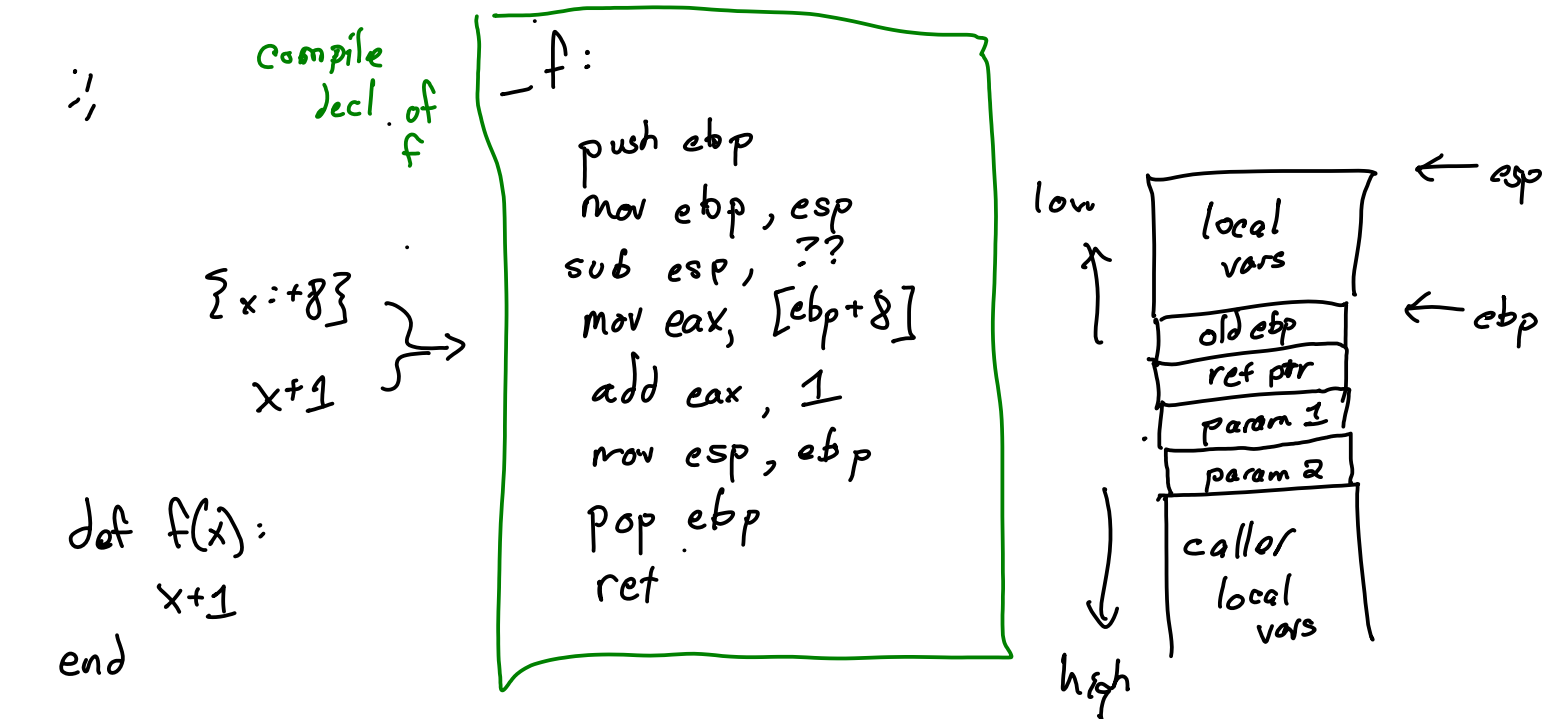 ;;
compile
decl. of
f
{x:+8}
x+1
def f(x):
x+1
end
_f:
push ebp
mov ebp, esp
sub esp, ??
mov eax, [ebp+8]
add eax, 1
mov esp, ebp
pop ebp
ret
low
high
local
vars
old ebp
ret ptr
param 1
param 2
caller
local
vars
esp
ebp